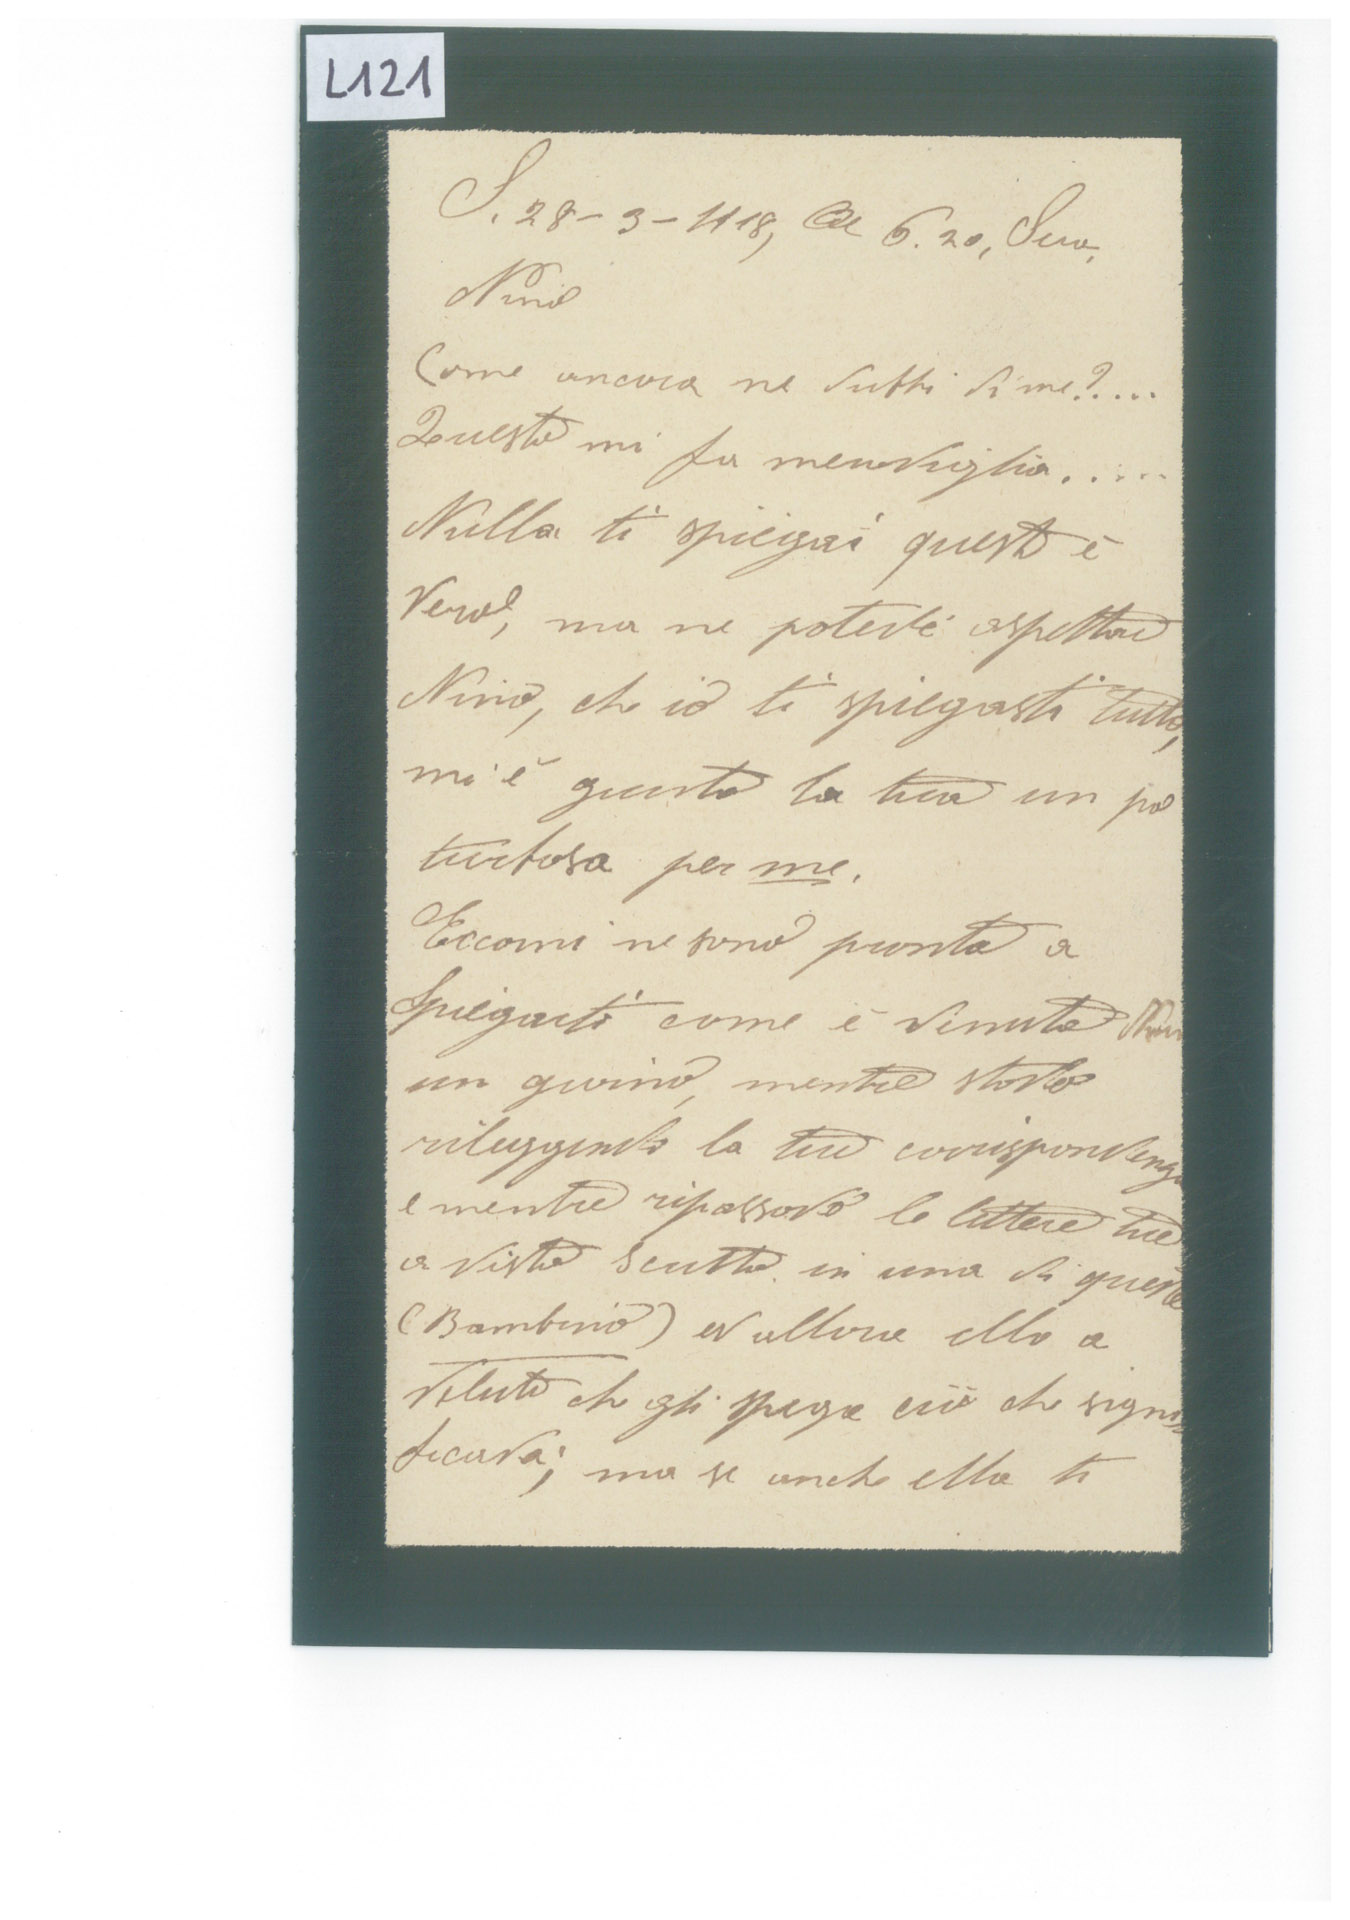 L121
S. 28-3-918, Ore 6.20, Sera,
Nino
Come ancora ne dubbi di me?....
Questo mi fa meraviglia.....
Nulla ti spiegai questo è
vero, ma ne potevi aspettare
Nino, che io ti spiegasti tutto,
mi è giunta la tua un po
turbosa per me.
Eccomi ne sono pronta a
spiegarti come è venuta
un giorno, mentre stavo
rileggendo la tue corrispondenza
e mentre ripassavo le lettere tue
a vista scritta in una di queste
(Bambino) ed allora ella a
voluto che gli spiega ciò che signi
ficava; ma se anche ella ti